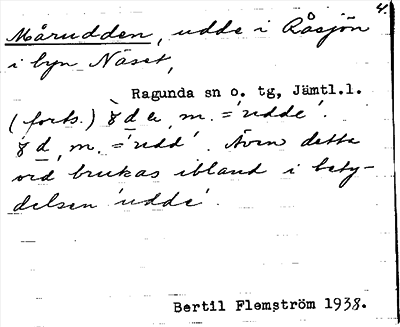 4.
Mårudden, udde i Råsjön
i byn Näset,
Ragunda sn o. tg, Jämtl.l.
(forts.) ȣ̀ d e, m. = 'udde'.
ȣ d, m. = 'udd'. Även detta
ord brukas ibland i bety-
delsen 'udde'.
Bertil Flemström 1938.